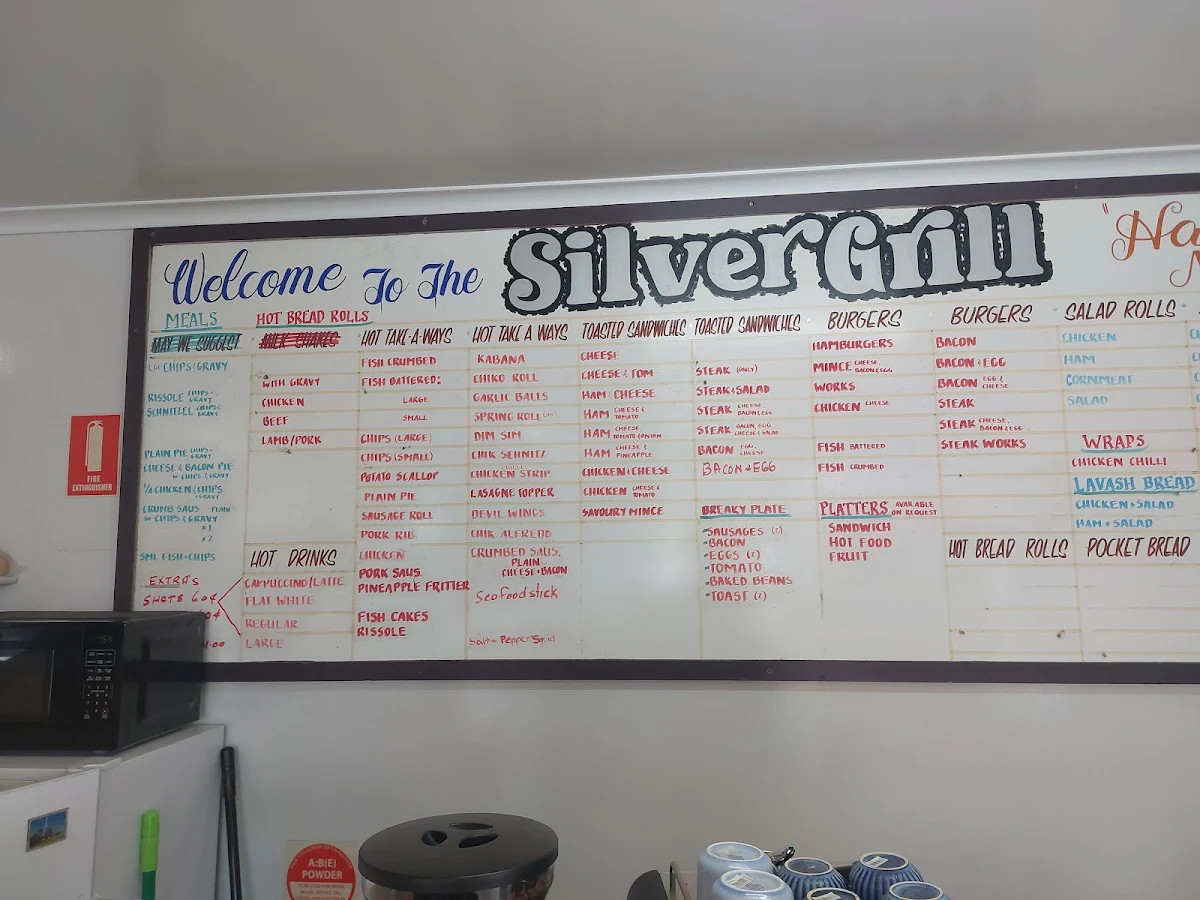 Welcome To The SilverGrill
MEALS
MAY WE SUGGEST
LGE CHIPS & GRAVY
RISSOLE CHIPS + GRAVY
SCHNITZEL CHIPS & GRAVY
PLAIN PIE CHIPS + GRAVY
CHEESE & BACON PIE
W CHIPS & GRAVY
1/4 CHICKEN & CHIPS
+ GRAVY
CRUMB SAUS - PLAIN
W CHIPS & GRAVY
x 1
x 2
SML FISH + CHIPS
EXTRA'S
SHOTS 60¢
HOT BREAD ROLLS
MILK SHAKES
WITH GRAVY
CHICKEN
BEEF
LAMB/PORK
HOT DRINKS
CAPPUCCINO/LATTE
FLAT WHITE
REGULAR
LARGE
HOT TAKE-A-WAYS
FISH CRUMBED
FISH BATTERED:
LARGE
SMALL
CHIPS (LARGE)
CHIPS (SMALL)
POTATO SCALLOP
PLAIN PIE
SAUSAGE ROLL
PORK RIB
CHICKEN
PORK SAUS
PINEAPPLE FRITTER
FISH CAKES
RISSOLE
HOT TAKE A WAYS
KABANA
CHIKO ROLL
GARLIC BALLS
SPRING ROLL
DIM SIM
CHIK SCHNITZ
CHICKEN STRIP
LASAGNE TOPPER
DEVIL WINGS
CHIK ALFREDO
CRUMBED SAUS.
PLAIN
CHEESE + BACON
Seafood stick
Salt + Pepper Squid
TOASTED SANDWICHES
CHEESE
CHEESE & TOM
HAM & CHEESE
HAM CHEESE & TOMATO
HAM CHEESE TOMATO & ONION
HAM CHEESE & PINEAPPLE
CHICKEN & CHEESE
CHICKEN CHEESE & TOMATO
SAVOURY MINCE
TOASTED SANDWICHES
STEAK (ONLY)
STEAK & SALAD
STEAK CHEESE, BACON & EGG
STEAK BACON, EGG CHEESE & SALAD
BACON EGG, CHEESE
BACON + EGG
BREAKY PLATE
- SAUSAGES (2)
- BACON
- EGGS (2)
- TOMATO
- BAKED BEANS
- TOAST (2)
BURGERS
HAMBURGERS
MINCE CHEESE, BACON & EGG
WORKS
CHICKEN CHEESE
FISH BATTERED
FISH CRUMBED
PLATTERS AVAILABLE ON REQUEST
SANDWICH
HOT FOOD
FRUIT
BURGERS
BACON
BACON & EGG
BACON EGG & CHEESE
STEAK
STEAK CHEESE, BACON & EGG
STEAK WORKS
HOT BREAD ROLLS
SALAD ROLLS
CHICKEN
HAM
CORNMEAT
SALAD
WRAPS
CHICKEN CHILLI
LAVASH BREAD
CHICKEN + SALAD
HAM + SALAD
POCKET BREAD
FIRE
EXTINGUISHER
A:B(E)
POWDER